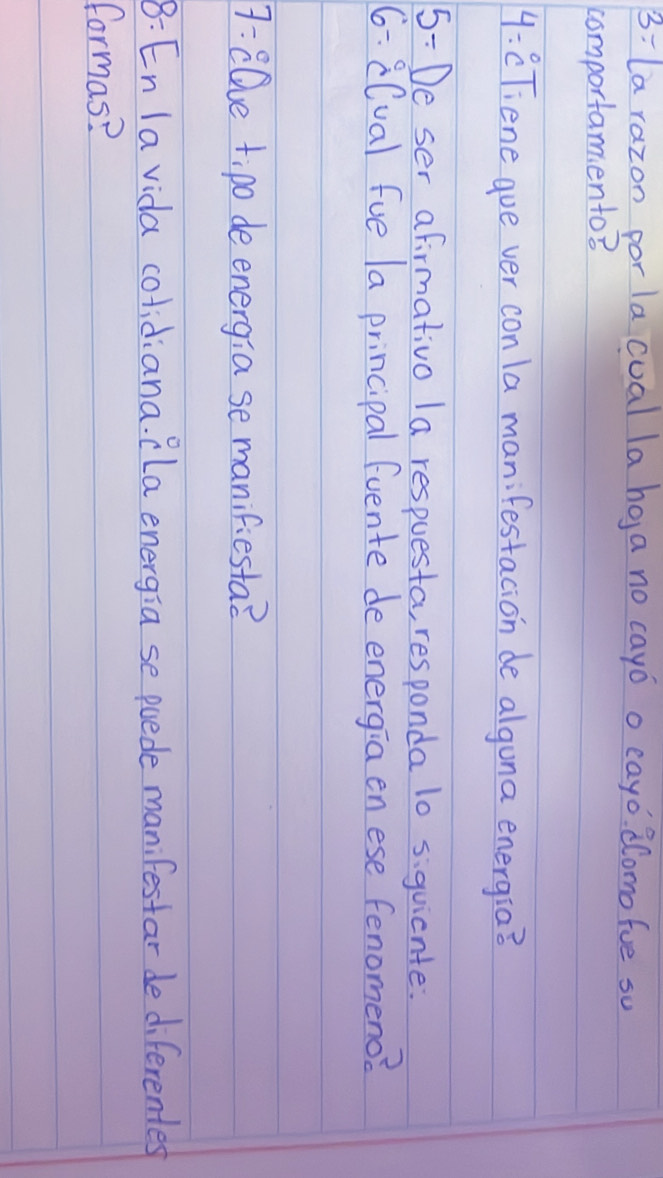 3-La razon por la cual la hoja no cayó o cayó.¿Como fue su
comportamiento?
4-¿Tiene que ver con la manifestación de alguna energía?
5-De ser afirmativo la respuesta, responda lo siguiente:
6-¿Cual fue la principal fuente de energía en ese fenomeno?
7-¿Que tipo de energía se manifiesta?
8-En la vida cotidiana.¿La energía se puede manifestar de diferentes
formas?